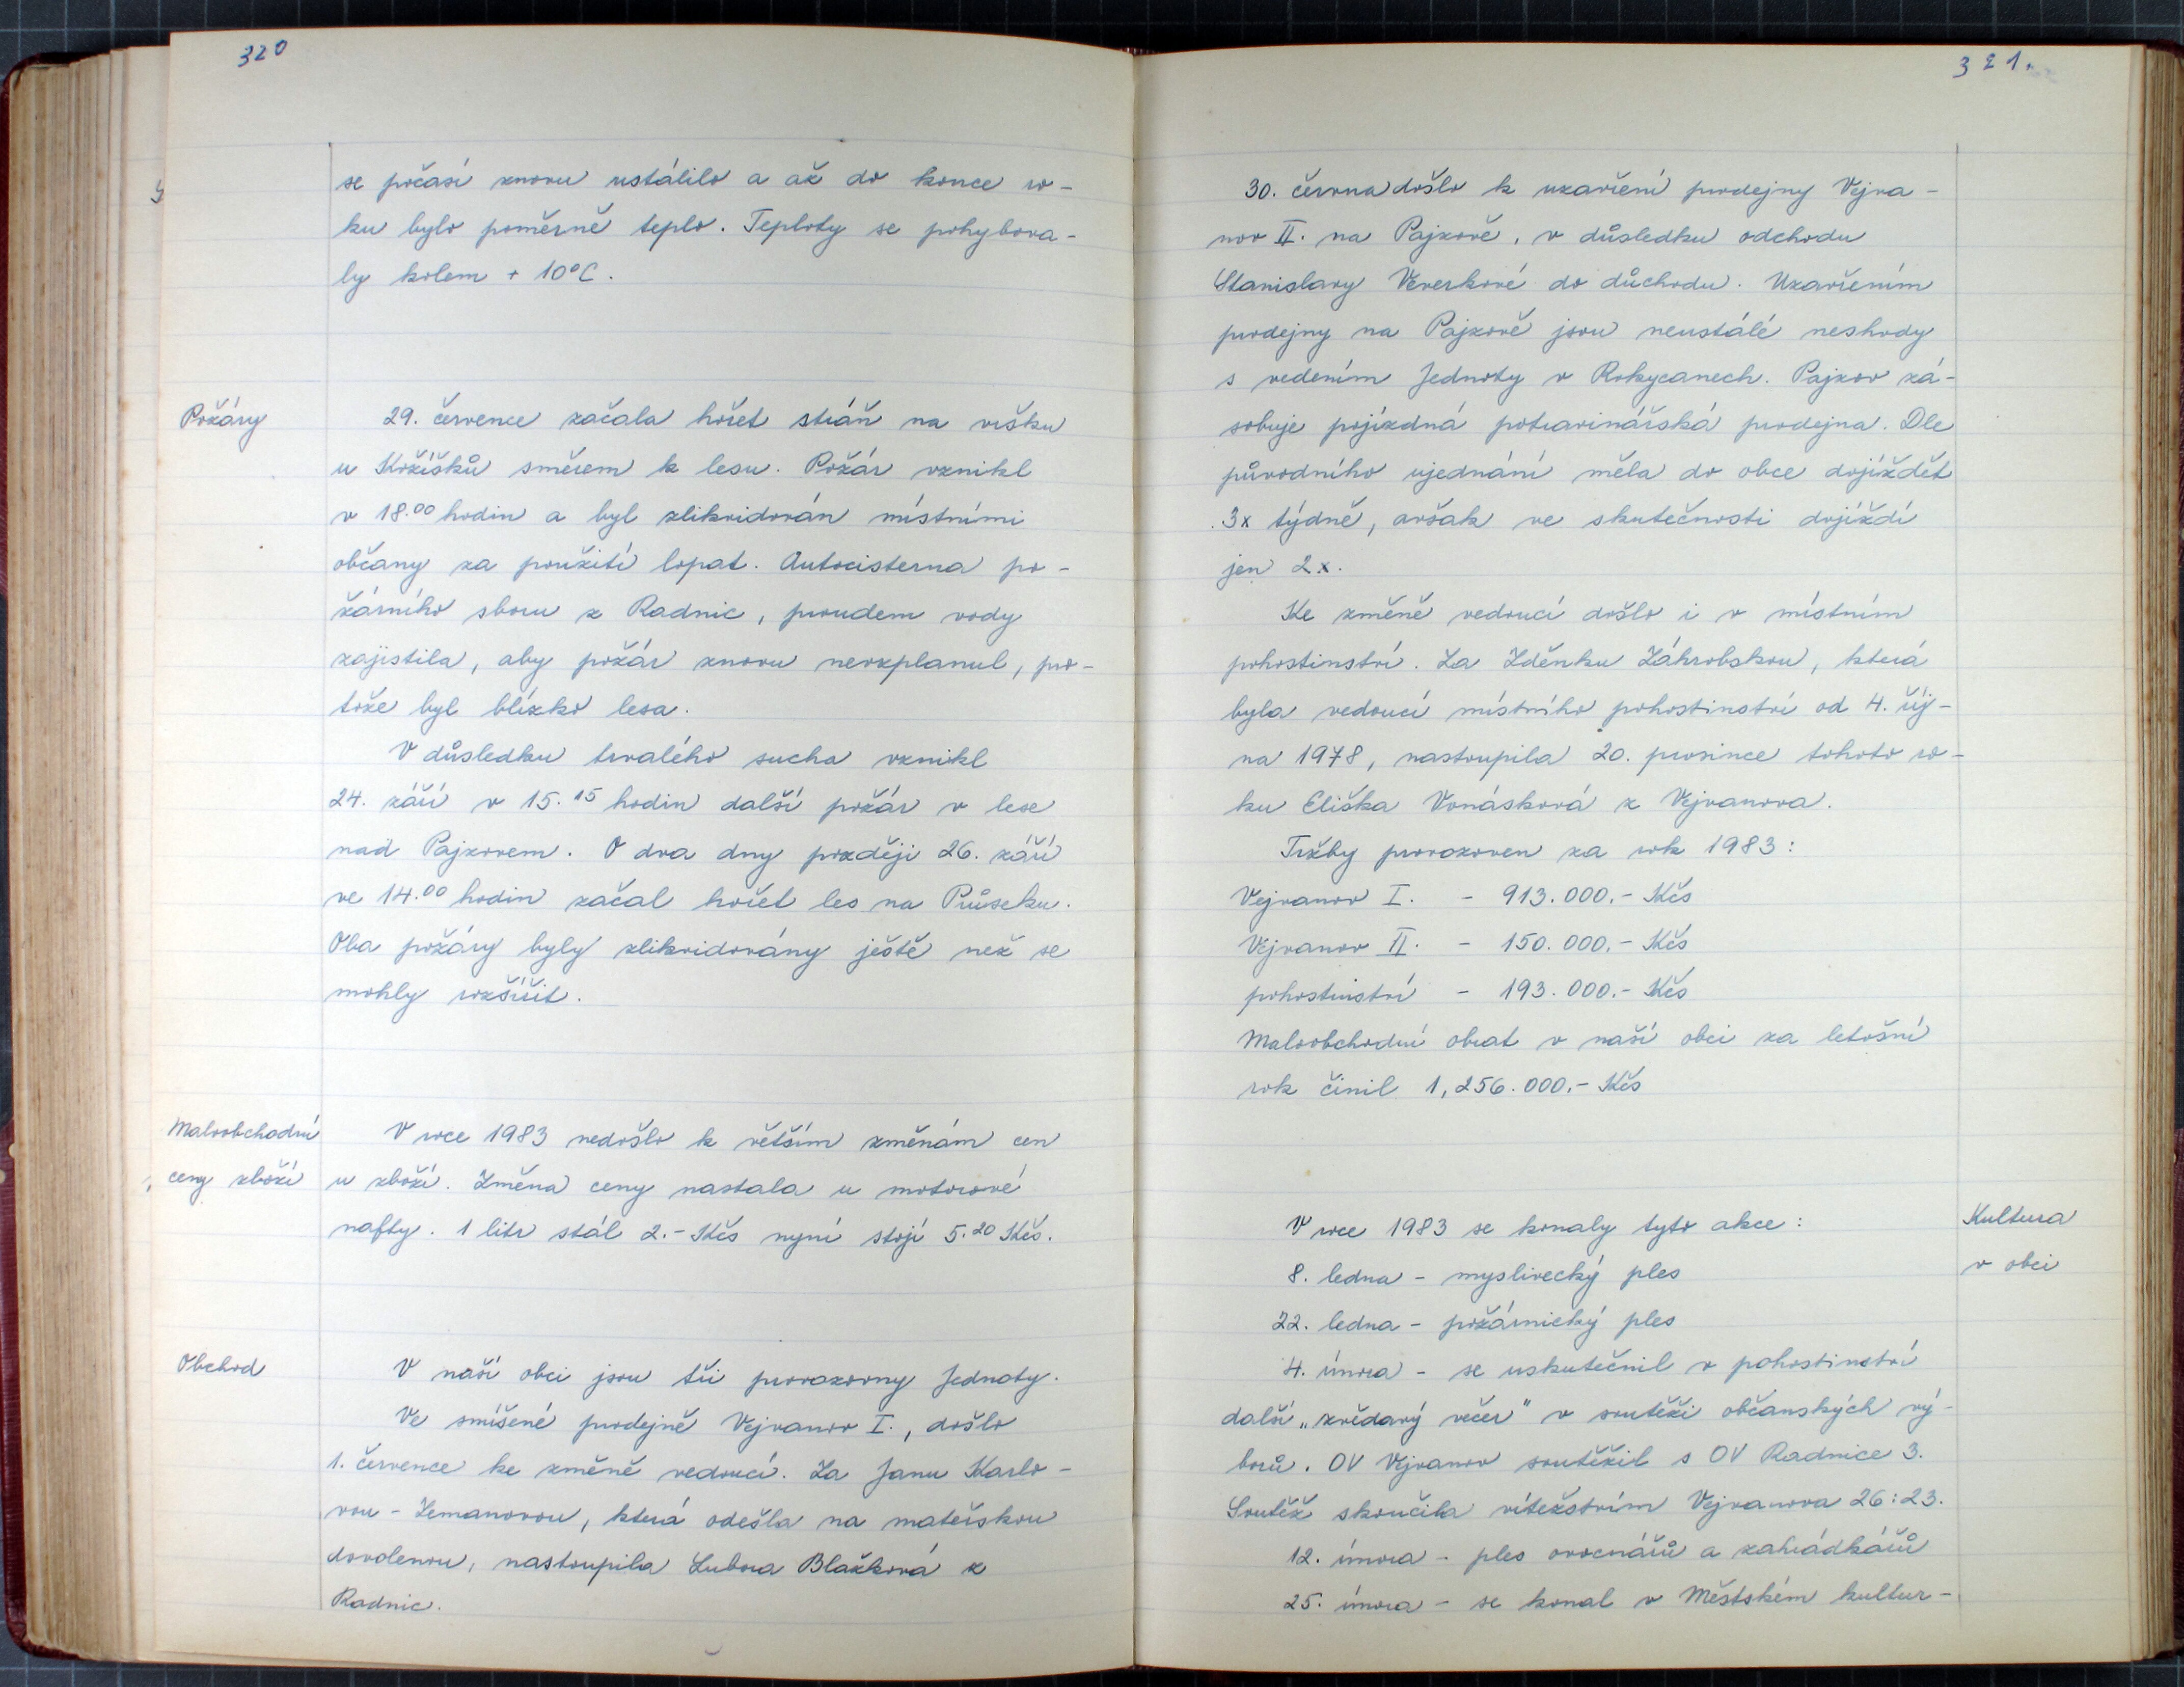 320
se počasí znovu ustálilo a až do konce ro-
ku bylo poměrně teplo. Teploty se pohybova-
ly kolem + 10°C.
Požáry
29. července začala hořet stráň na vršku
u Kožíšků směrem k lesu. Požár vznikl
v 18.00 hodin a byl zlikvidován místními
občany za použití lopat. Autocisterna po-
žárního sboru z Radnic, proudem vody
zajistila, aby požár znovu nevzplanul, pro-
tože byl blízko lesa.
V důsledku trvalého sucha vznikl
24. září v 15.15 hodin další požár v lese
nad Pajzovem. O dva dny později 26. září
ve 14.00 hodin začal hořet les na Průseku.
Oba požáry byly zlikvidovány ještě než se
mohly rozšířit.
Maloobchodní
ceny zboží
V roce 1983 nedošlo k větším změnám cen
u zboží. Změna ceny nastala u motorové
nafty. 1 litr stál 2.- Kčs nyní stojí 5.20 Kčs.
Obchod
V naší obci jsou tři provozovny Jednoty.
Ve smíšené prodejně Vejvanov I., došlo
1. července ke změně vedoucí. Za Janu Karlo-
vou - Zemanovou, která odešla na mateřskou
dovolenou, nastoupila Lubora Blažková z
Radnic.
321.
30. června došlo k uzavření prodejny Vejva-
nov II. na Pajzově, v důsledku odchodu
Stanislavy Veverkové do důchodu. Uzavřením
prodejny na Pajzově jsou neustálé neshody
s vedením Jednoty v Rokycanech. Pajzov zá-
sobuje pojízdná potravinářská prodejna. Dle
původního ujednání měla do obce dojíždět
3x týdně, avšak ve skutečnosti dojíždí
jen 2x.
Ke změně vedoucí došlo i v místním
pohostinství. Za Zděnku Záhrobskou, která
byla vedoucí místního pohostinství od 4. říj-
na 1978, nastoupila 20. prosince tohoto ro-
ku Eliška Vonásková z Vejvanova.
Tržby provozoven za rok 1983:
Vejvanov I. - 913.000.- Kčs
Vejvanov II. - 150.000.- Kčs
pohostinství - 193.000.- Kčs
Maloobchodní obrat v naší obci za letošní
rok činil 1,256.000.- Kčs
Kultura
v obci
V roce 1983 se konaly tyto akce:
8. ledna - myslivecký ples
22. ledna - požárnický ples
4. února - se uskutečnil v pohostinství
další „zvědavý večer" v soutěži občanských vý-
borů. OV Vejvanov soutěžil s OV Radnice 3.
Soutěž skončila vítězstvím Vejvanova 26:23.
12. února - ples ovocnářů a zahrádkářů
25. února - se konal v Městském kultur-